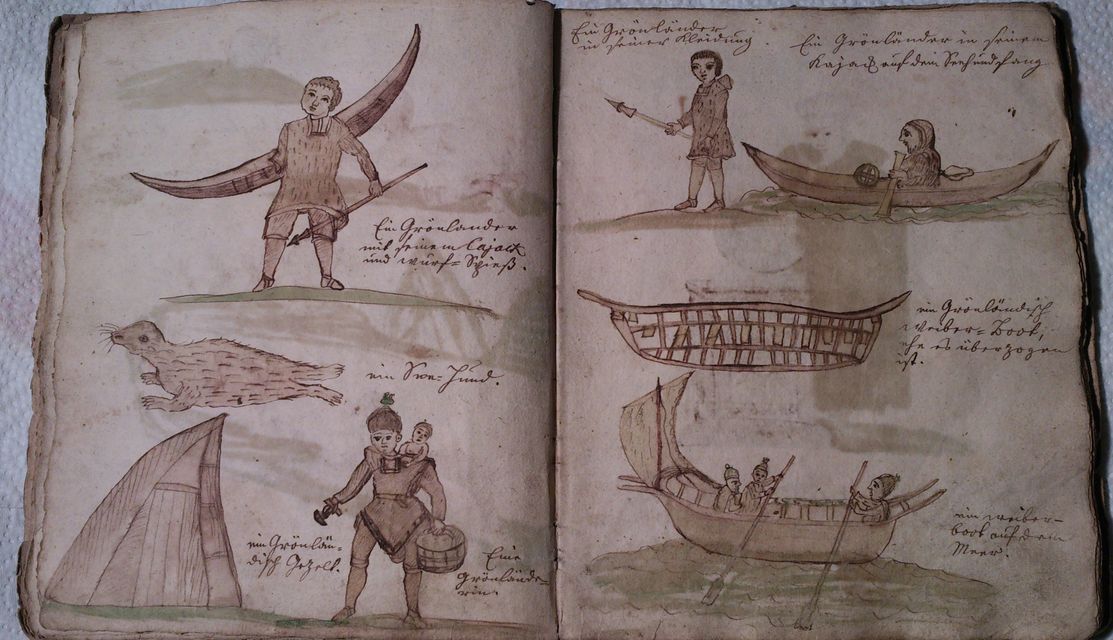 Ein Grönlander
mit seinem Cajack
und wurf-Spieß.
ein See-Hund.
ein Grönlän-
disch Gezelt.
Eine
Grönlände-
rin.
Ein Grönländer
in seiner Kleidung.
Ein Grönländer in seinem
Kajack auf dem Seehundsfang
ein Grönländisch
Weiber-Boot,
ehe es überzogen
ist.
ein weiber-
boot auf dem
Meer.